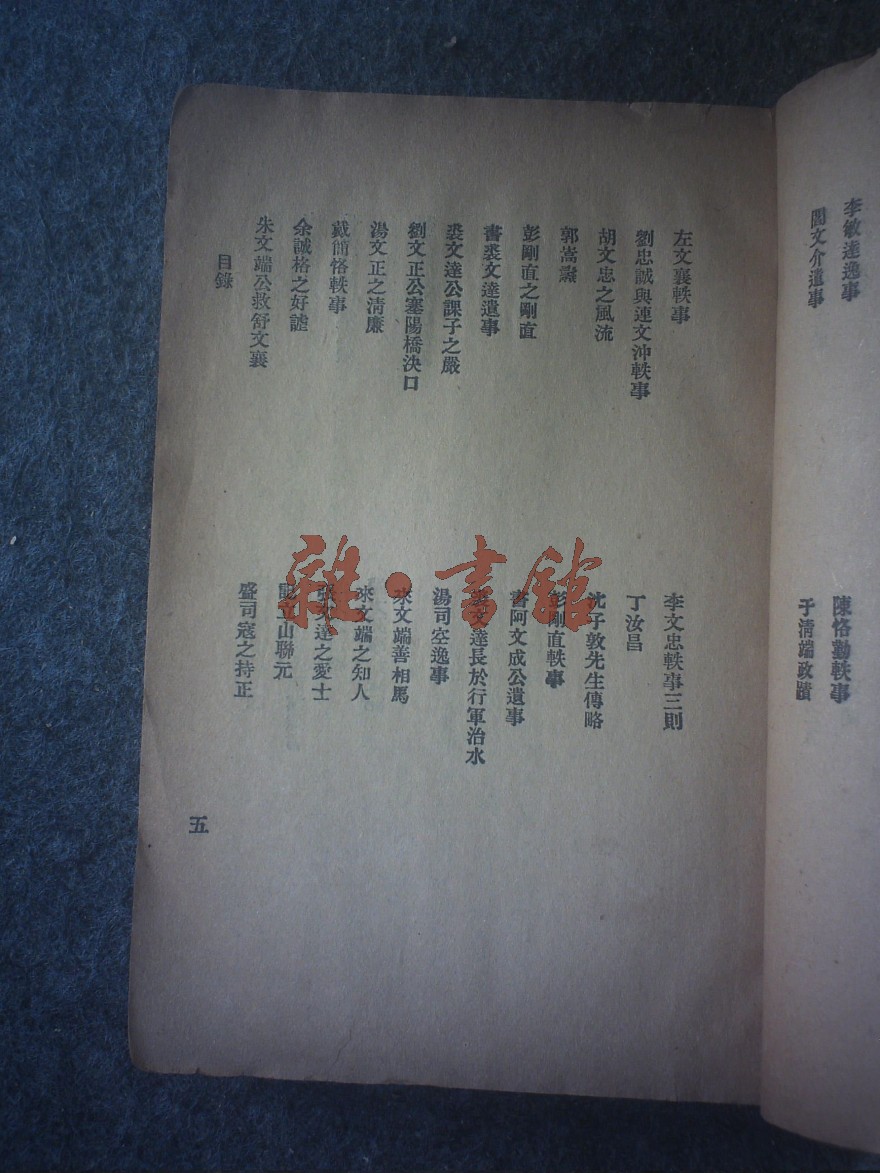 李敏達逸事
陳恪勤軼事
閻文介遺事
于清端政蹟
左文襄軼事
李文忠軼事三則
劉忠誠與連文沖軼事
丁汝昌
胡文忠之風流
沈子敦先生傳略
郭嵩燾
彭剛直軼事
彭剛直之剛直
書阿文成公遺事
書裘文達遺事
裘文達長於行軍治水
裘文達公課子之嚴
湯司空逸事
劉文正公塞陽橋決口
來文端善相馬
湯文正之清廉
來文端之知人
戴簡恪軼事
張文達之愛士
余誠格之好謔
立山聯元
朱文端公救舒文襄
盛司寇之持正
目錄
五
雜·書館